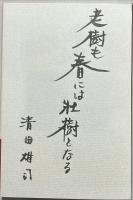 老樹も
春には壮樹となる
清田雄司